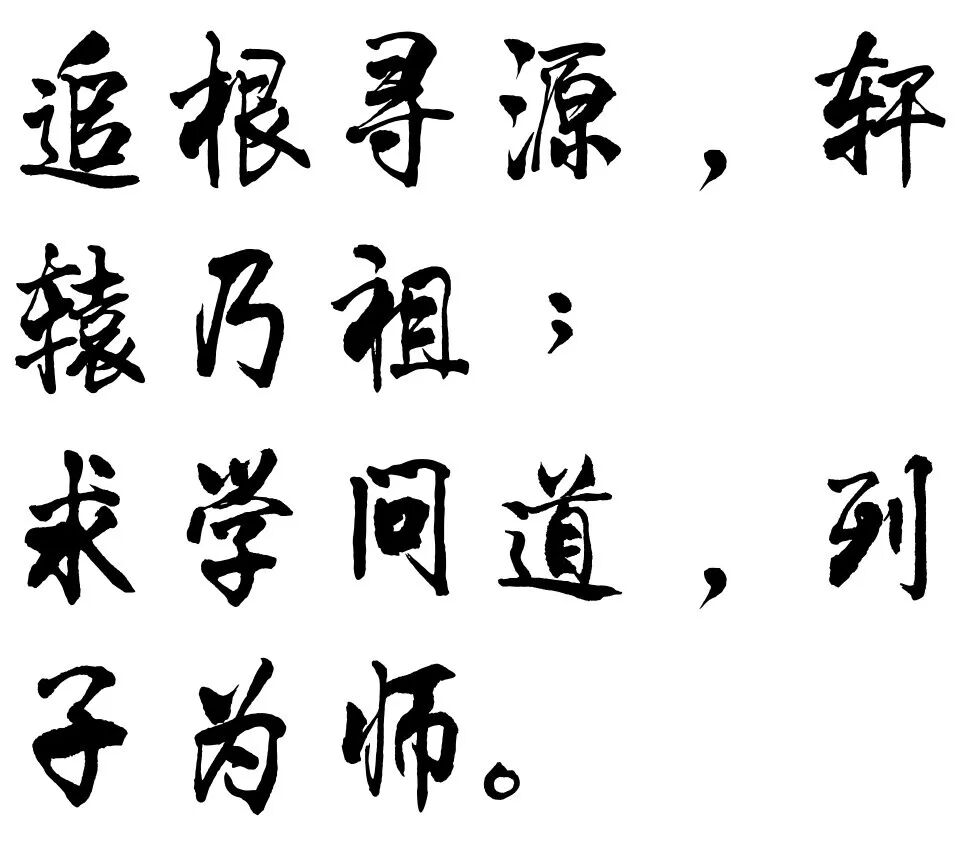 追根寻源，轩
辕乃祖；
求学问道，列
子为师。